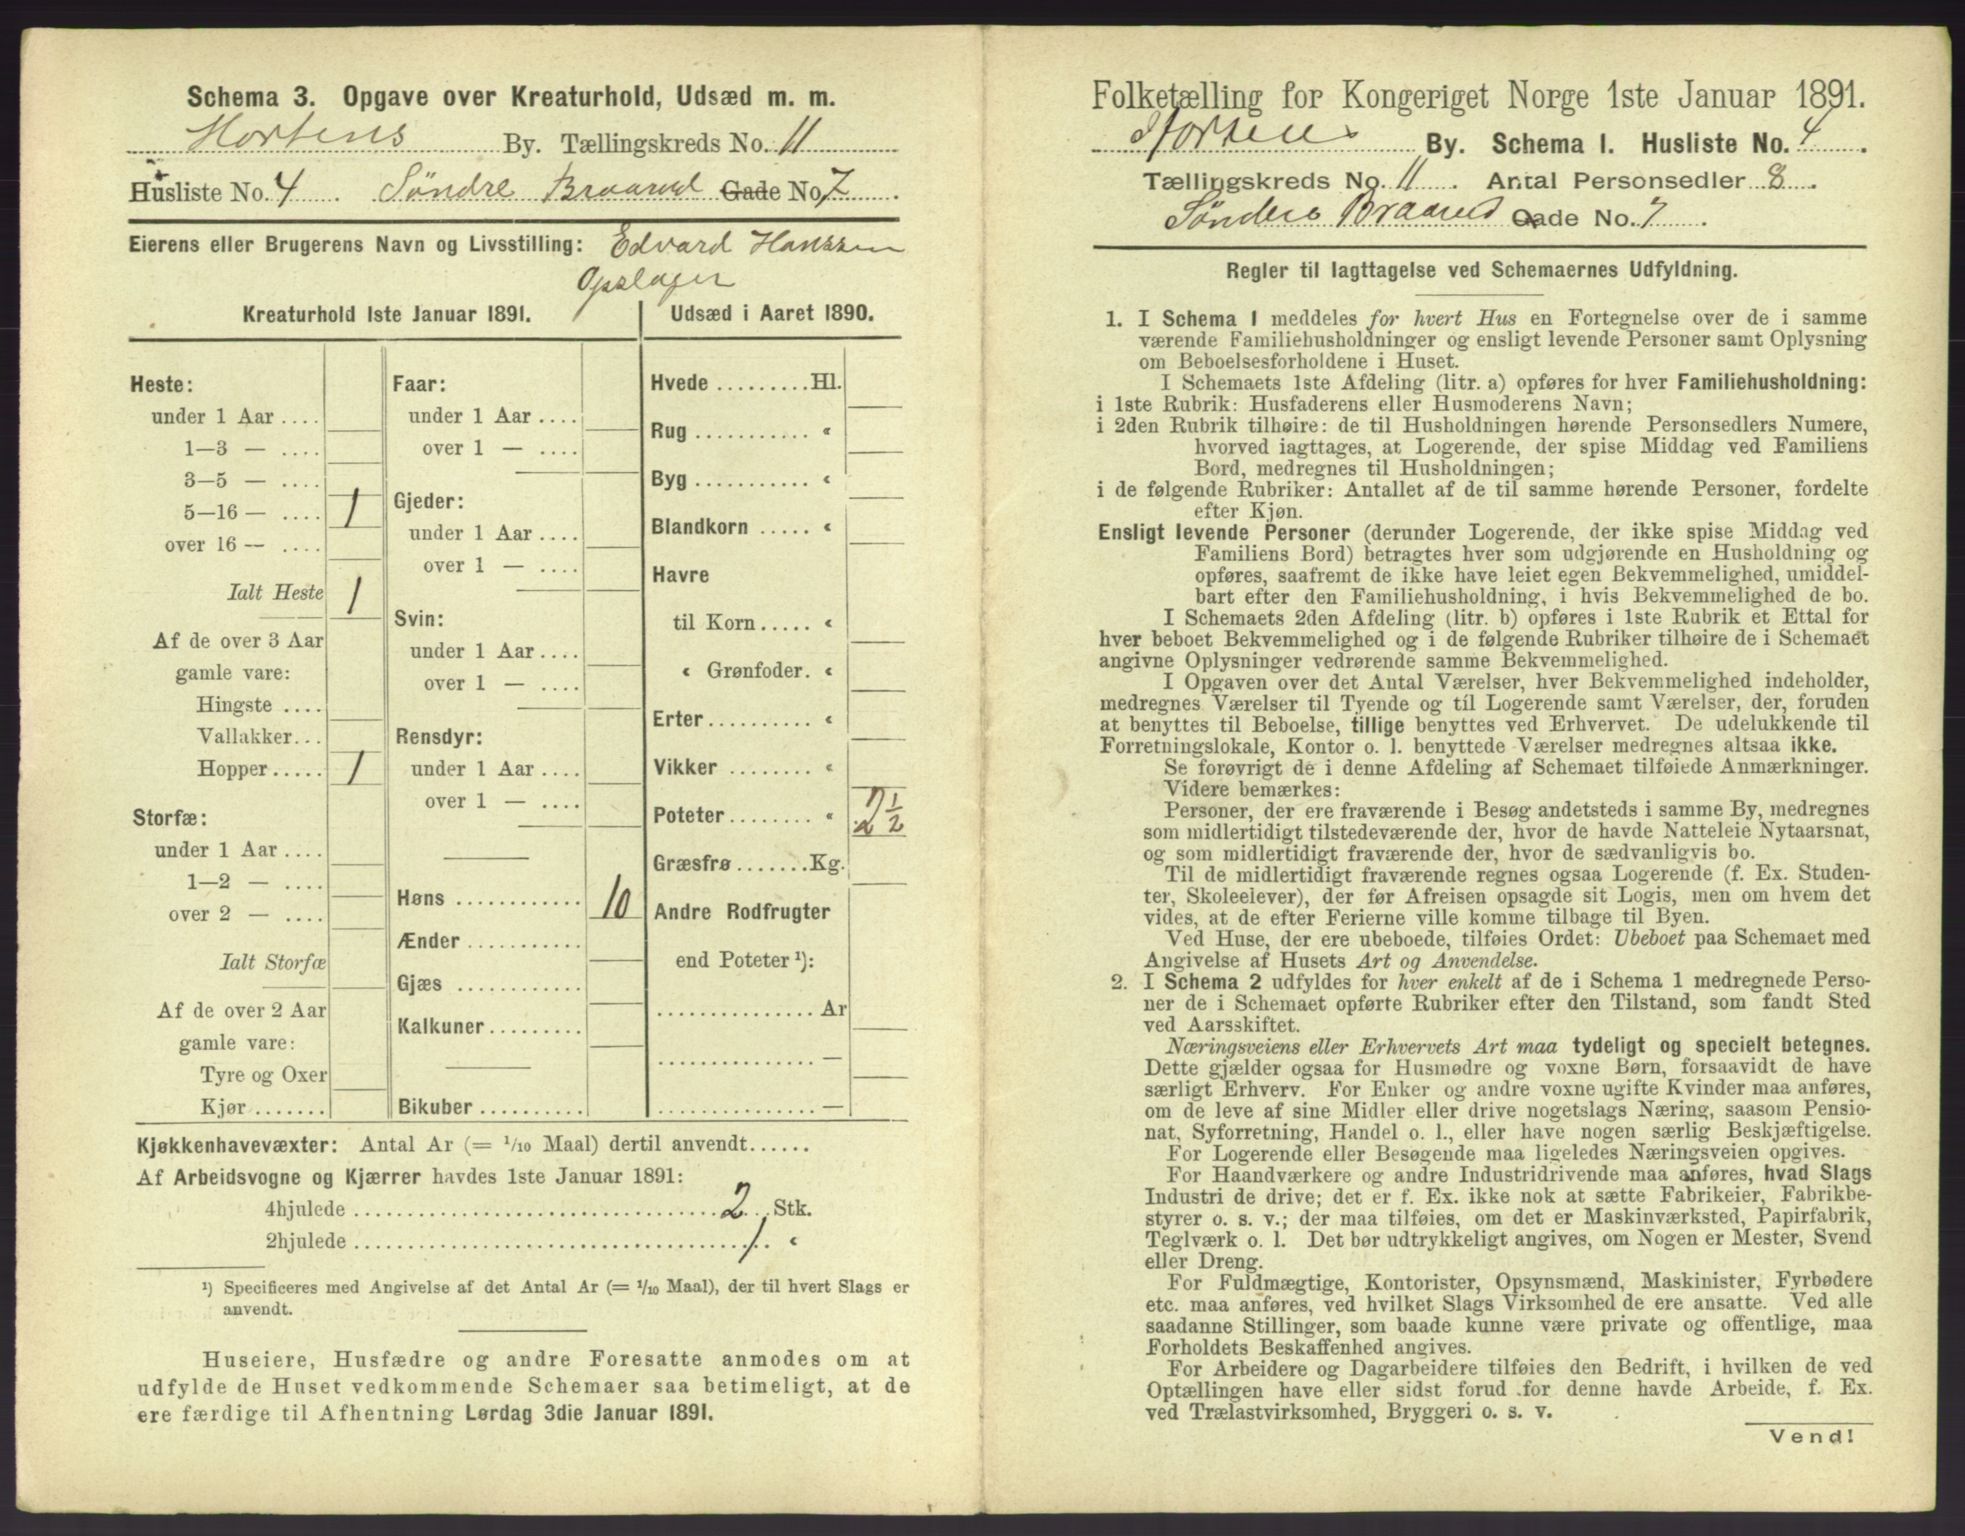 Schema 3. Opgave over Kreaturhold, Udsæd m. m.
Hortens By. Tællingskreds No. 11
Husliste No. 4 Søndre Braarud Gade No. 7
Eierens eller Brugerens Navn og Livsstilling: Edvard Hanssen
Kreaturhold 1ste Januar 1891.
Heste:
under 1 Aar ....
1—3 — ....
3—5 — ....
5—16 — .... 1
over 16 — ....
Ialt Heste 1
Af de over 3 Aar
gamle vare:
Hingste ....
Vallakker...
Hopper..... 1
Storfæ:
under 1 Aar ....
1—2 — ....
over 2 — ....
Ialt Storfæ
Af de over 2 Aar
gamle vare:
Tyre og Oxer
Kjør.......
Faar:
under 1 Aar ....
over 1 — ....
Gjeder:
under 1 Aar ....
over 1 — ....
Svin:
under 1 Aar ....
over 1 — ....
Rensdyr:
under 1 Aar ....
over 1 — ....
Høns ............ 10
Ænder ...........
Gjæs ............
Kalkuner.........
Bikuber ..........
Udsæd i Aaret 1890.
Hvede .........Hl.
Rug ........... "
Byg ........... "
Blandkorn ..... "
Havre
til Korn..... "
" Grønfoder. "
Erter.......... "
Vikker ........ "
Poteter........ " 2 1/2
Græsfrø .......Kg.
Andre Rodfrugter
end Poteter ¹):
............... Ar
............... —
............... —
Kjøkkenhavevæxter: Antal Ar (= 1/10 Maal) dertil anvendt......
Af Arbeidsvogne og Kjærrer havdes 1ste Januar 1891:
4hjulede ........ 2 Stk.
2hjulede ........ 1 "
¹) Specificeres med Angivelse af det Antal Ar (= 1/10 Maal), der til hvert Slags er
anvendt.
Huseiere, Husfædre og andre Foresatte anmodes om at
udfylde de Huset vedkommende Schemaer saa betimeligt, at de
ere færdige til Afhentning Lørdag 3die Januar 1891.
Folketælling for Kongeriget Norge 1ste Januar 1891.
Hortens By. Schema I. Husliste No. 4
Tællingskreds No. 11. Antal Personsedler 8
Søndre Braarud Gade No. 7
Regler til Iagttagelse ved Schemaernes Udfyldning.
1. I Schema I meddeles for hvert Hus en Fortegnelse over de i samme
værende Familiehusholdninger og ensligt levende Personer samt Oplysning
om Beboelsesforholdene i Huset.
I Schemaets 1ste Afdeling (litr. a) opføres for hver Familiehusholdning:
i 1ste Rubrik: Husfaderens eller Husmoderens Navn;
i 2den Rubrik tilhøire: de til Husholdningen hørende Personsedlers Numere,
hvorved iagttages, at Logerende, der spise Middag ved Familiens
Bord, medregnes til Husholdningen;
i de følgende Rubriker: Antallet af de til samme hørende Personer, fordelte
efter Kjøn.
Ensligt levende Personer (derunder Logerende, der ikke spise Middag ved
Familiens Bord) betragtes hver som udgjørende en Husholdning og
opføres, saafremt de ikke have leiet egen Bekvemmelighed, umiddel-
bart efter den Familiehusholdning, i hvis Bekvemmelighed de bo.
I Schemaets 2den Afdeling (litr. b) opføres i 1ste Rubrik et Ettal for
hver beboet Bekvemmelighed og i de følgende Rubriker tilhøire de i Schemaet
angivne Oplysninger vedrørende samme Bekvemmelighed.
I Opgaven over det Antal Værelser, hver Bekvemmelighed indeholder,
medregnes Værelser til Tyende og til Logerende samt Værelser, der, foruden
at benyttes til Beboelse, tillige benyttes ved Erhvervet. De udelukkende til
Forretningslokale, Kontor o. l. benyttede Værelser medregnes altsaa ikke.
Se forøvrigt de i denne Afdeling af Schemaet tilføiede Anmærkninger.
Videre bemærkes:
Personer, der ere fraværende i Besøg andetsteds i samme By, medregnes
som midlertidigt tilstedeværende der, hvor de havde Natteleie Nytaarsnat,
og som midlertidigt fraværende der, hvor de sædvanligvis bo.
Til de midlertidigt fraværende regnes ogsaa Logerende (f. Ex. Studen-
ter, Skoleelever), der før Afreisen opsagde sit Logis, men om hvem det
vides, at de efter Ferierne ville komme tilbage til Byen.
Ved Huse, der ere ubeboede, tilføies Ordet: Ubeboet paa Schemaet med
Angivelse af Husets Art og Anvendelse.
2. I Schema 2 udfyldes for hver enkelt af de i Schema 1 medregnede Perso-
ner de i Schemaet opførte Rubriker efter den Tilstand, som fandt Sted
ved Aarsskiftet.
Næringsveiens eller Erhvervets Art maa tydeligt og specielt betegnes.
Dette gjælder ogsaa for Husmødre og voxne Børn, forsaavidt de have
særligt Erhverv. For Enker og andre voxne ugifte Kvinder maa anføres,
om de leve af sine Midler eller drive nogetslags Næring, saasom Pensio-
nat, Syforretning, Handel o. l., eller have nogen særlig Beskjæftigelse.
For Logerende eller Besøgende maa ligeledes Næringsveien opgives.
For Haandværkere og andre Industridrivende maa anføres, hvad Slags
Industri de drive; det er f. Ex. ikke nok at sætte Fabrikeier, Fabrikbe-
styrer o. s. v.; der maa tilføies, om det er Maskinværksted, Papirfabrik,
Teglværk o. l. Det bør udtrykkeligt angives, om Nogen er Mester, Svend
eller Dreng.
For Fuldmægtige, Kontorister, Opsynsmænd, Maskinister, Fyrbødere
etc. maa anføres, ved hvilket Slags Virksomhed de ere ansatte. Ved alle
saadanne Stillinger, som baade kunne være private og offentlige, maa
Forholdets Beskaffenhed angives.
For Arbeidere og Dagarbeidere tilføies den Bedrift, i hvilken de ved
Optællingen have eller sidst forud for denne havde Arbeide, f. Ex.
ved Trælastvirksomhed, Bryggeri o. s. v.
Vend!